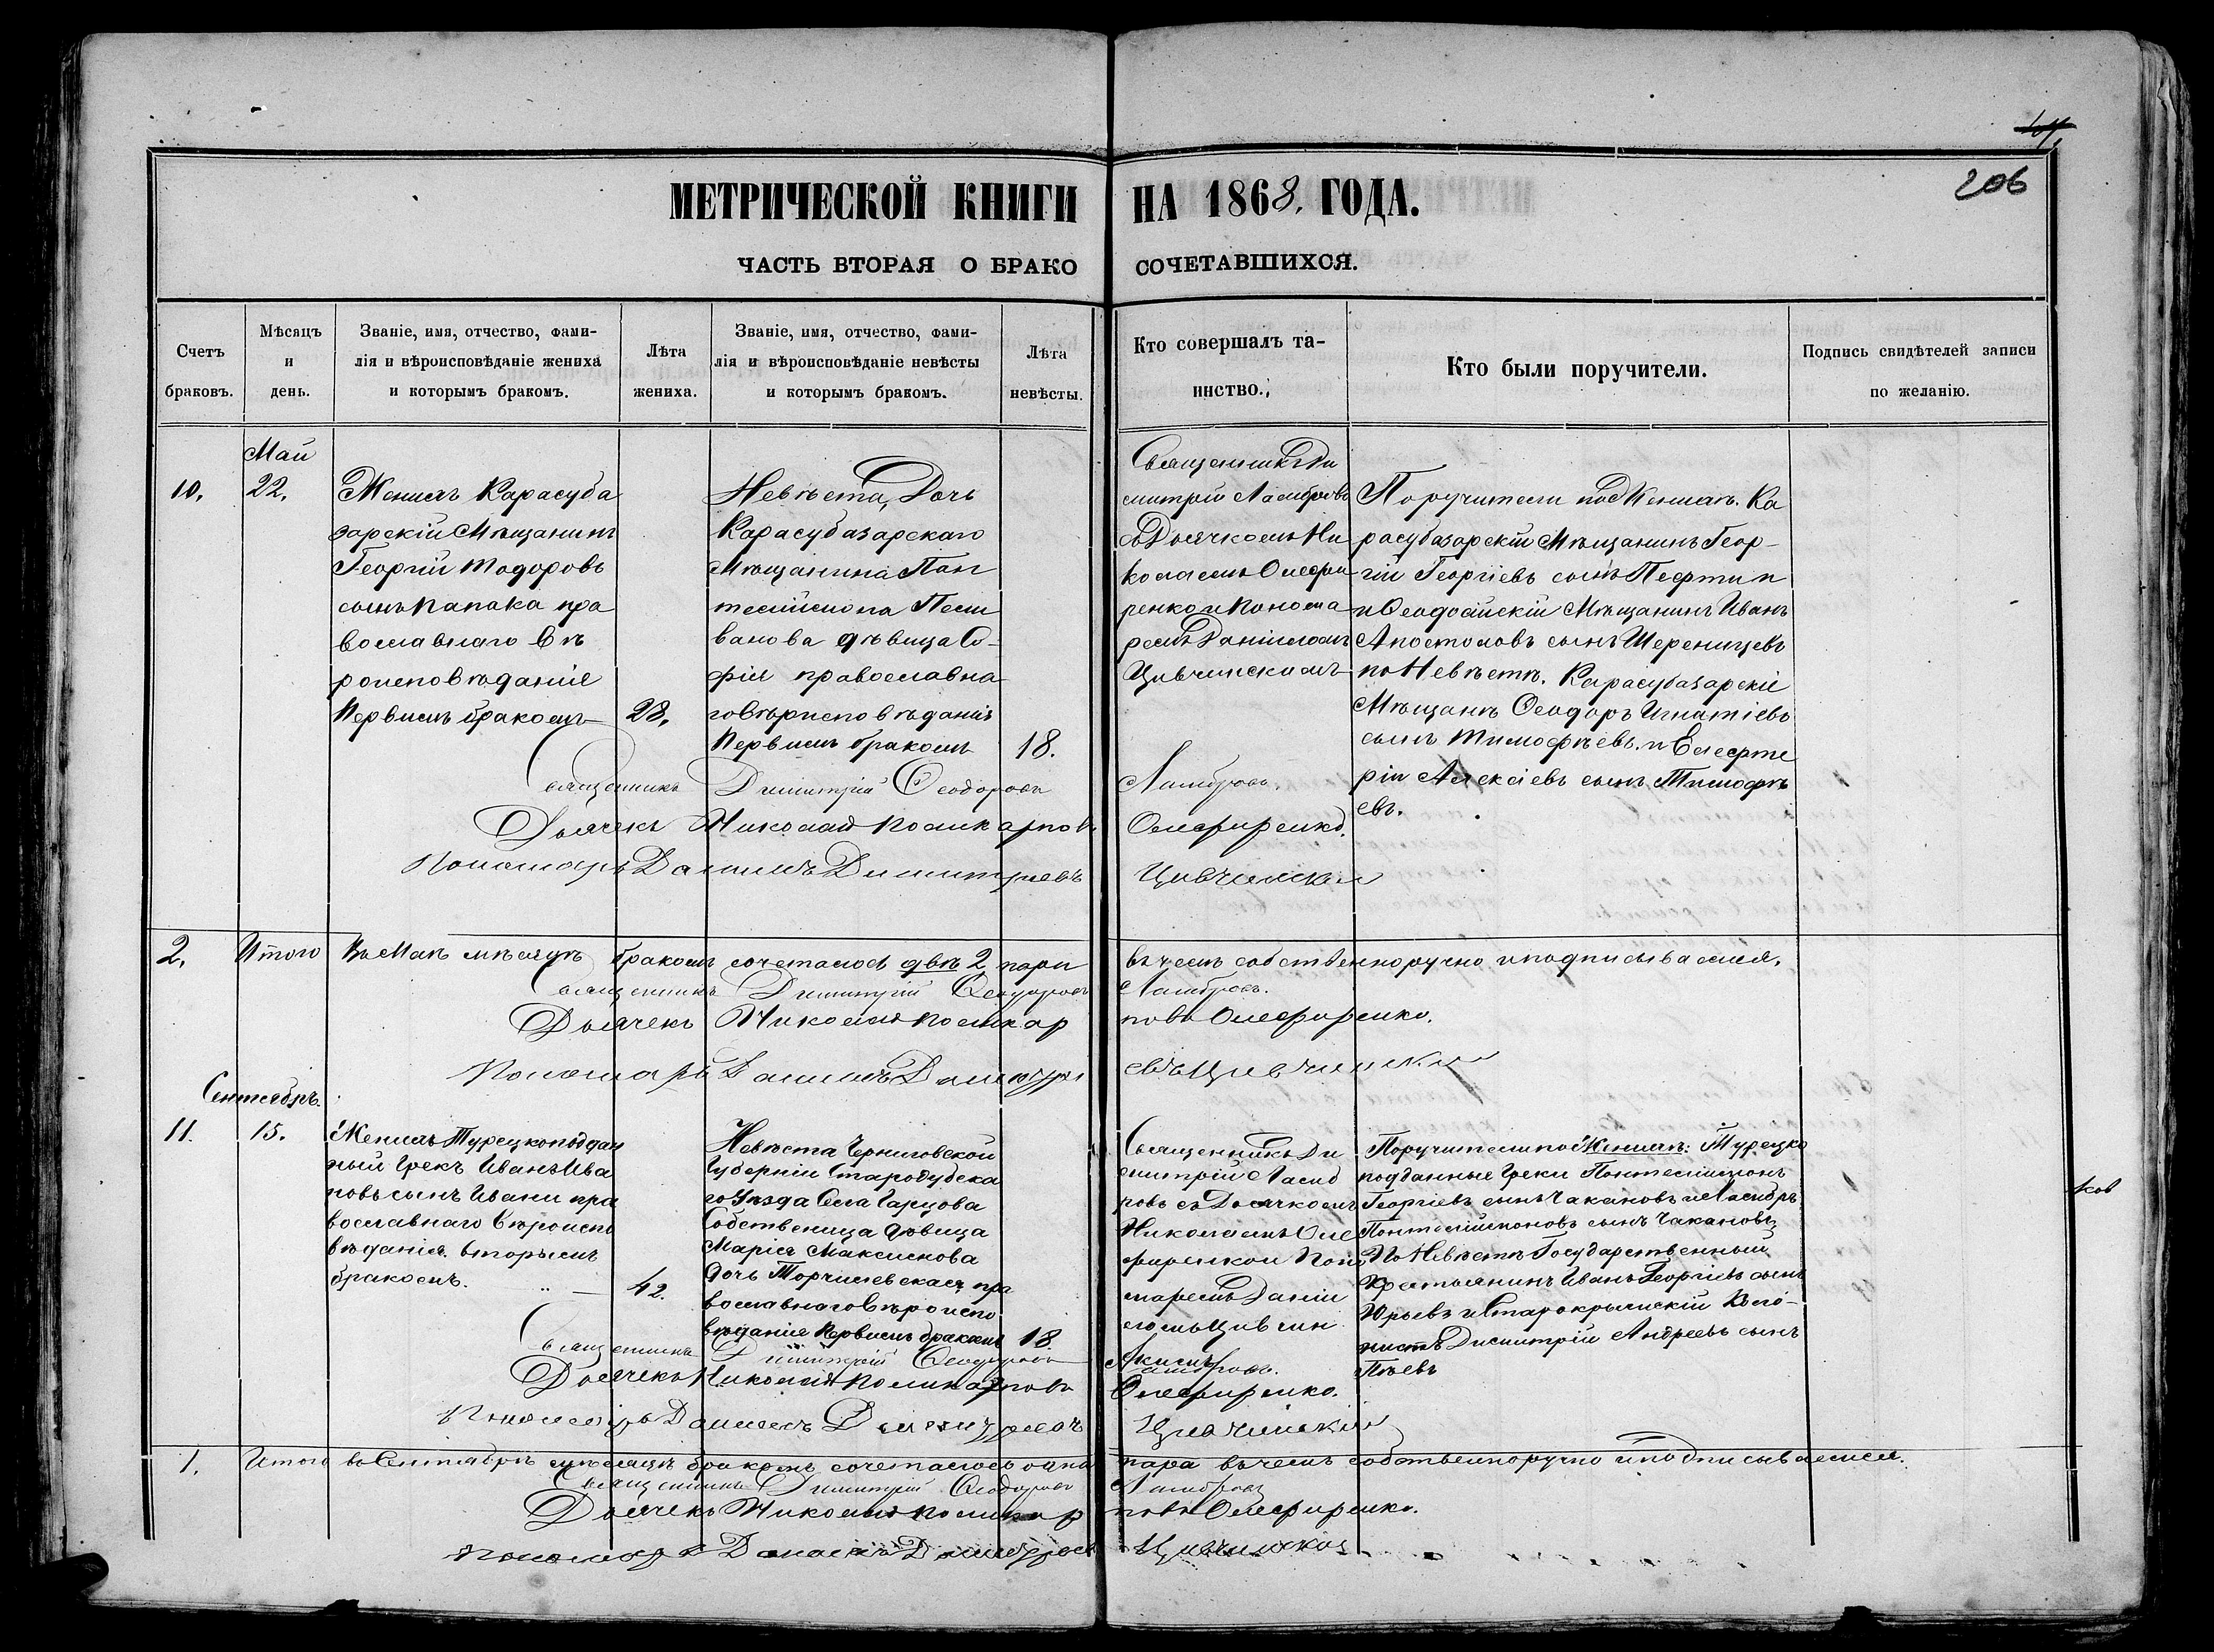 206
МЕТРИЧЕСКОЙ КНИГИ НА 1868. ГОДА.
ЧАСТЬ ВТОРАЯ О БРАКО СОЧЕТАВШИХСЯ.
Счетъ
браковъ.
Мѣсяцъ
и
день.
Званіе, имя, отчество, фами-
лія и вѣроисповѣданіе жениха
и которымъ бракомъ.
Лѣта
жениха.
Званіе, имя, отчество, фами-
лія и вѣроисповѣданіе невѣсты
и которымъ бракомъ.
Лѣта
невѣсты.
Кто совершалъ та-
инство.
Кто были поручители.
Подпись свидѣтелей записи
по желанію.
10.
Май
22.
Женихъ Карасуба
зарскій Мѣщанинъ
Георгій Тодоровъ
сынъ Папака пра
вославнаго Вѣ
роисповѣданіе
Первымъ бракомъ
28.
Невѣста, Дочь
Карасубазарскаго
Мѣщанина Пан
телиймона Пели
ванова дѣвица Со-
фія православна
го вѣрисповѣданія
Первымъ бракомъ
18.
Священникъ Ди
митрій Ламбровъ
съ Дьячкомъ Ни
колаемъ Олефи
ренко и Понома
ремъ Даніиломъ
Цивчинскимъ
Поручители под Женихѣ. Ка
расубазарскій Мѣщанинъ Геор-
гій Георгіевъ сынъ
и Ѳеодосійскій Мѣщанинъ Иванъ
Апостоловъ сынъ Шеренцевъ
по Невѣстѣ. Карасубазарскіе
Мѣщанѣ Ѳеодоръ Игнатіевъ
сынъ Тимофѣевъ. и Елефте
рій Алексіевъ сынъ Тимофѣ
евъ.
Священникъ Димитрій Ѳеодоровъ Ламбровъ.
Дьячекъ Николай Поликарповъ Олефиренко.
Пономарь Даніилъ Димитріевъ Цивчинскій
2. Итого Въ Маѣ мѣсяцѣ бракомъ сочеталось двѣ 2 пары въ чемъ собственноручно и подписываемся.
Священникъ Димитрій Ѳеодоровъ Ламбровъ.
Дьячекъ Николай Поликар повъ Олефиренко.
Пономарь Даніилъ Димитрі евъ Цивчинскій
11.
Сентябрь.
15.
Женихъ Турецкоподдан
ный Грекъ Иванъ Ива
новъ сынъ Ивани пра
вославнаго Вѣроиспо
вѣданія. вторымъ
бракомъ.
42.
Невѣста Черниговской
Губерніи Стародубска
го Уѣзда Села Гарцова
Собственица дѣвица
Марія Максимова
дочь Торчилевская, пра
вославнаго Вѣроиспо
вѣданіе Первымъ бракомъ
18.
Священникъ Ди
митрій Ламб
ровъ съ Дьячкомъ
Николаемъ Оле
фиренкои Поно
маремъ Даніи
ломъ Цивчин
скимъ
Поручители по Женихѣ: Турецко
подданные Греки Пантелиймонъ
Георгіевъ сынъ Чакановъ и Ламбръ
Пантелиймоновъ сынъ Чакановъ,
По Невѣстѣ Государственный
Крестьянинъ Иванъ Георгіевъ сынъ
Юрьевъ и Старокрымскій Коло-
нистъ Димитрій Андреевъ сынъ
ков
Священникъ Димитрій Ѳеодоровъ Ламбровъ.
Дьячекъ Николай Поликарповъ Олефиренко.
Пономарь Даніилъ Димитріевъ Цивчинскій
1. Итого въ Сентябрѣ мѣсяцѣ бракомъ сочеталось одна пара въ чемъ собственноручно и подписываемся.
Священникъ Димитрій Ѳеодоровъ Ламбровъ
Дьячекъ Николай Поликар повъ Олефиренко.
Пономарь Даніилъ Димитріев Цивчинскій